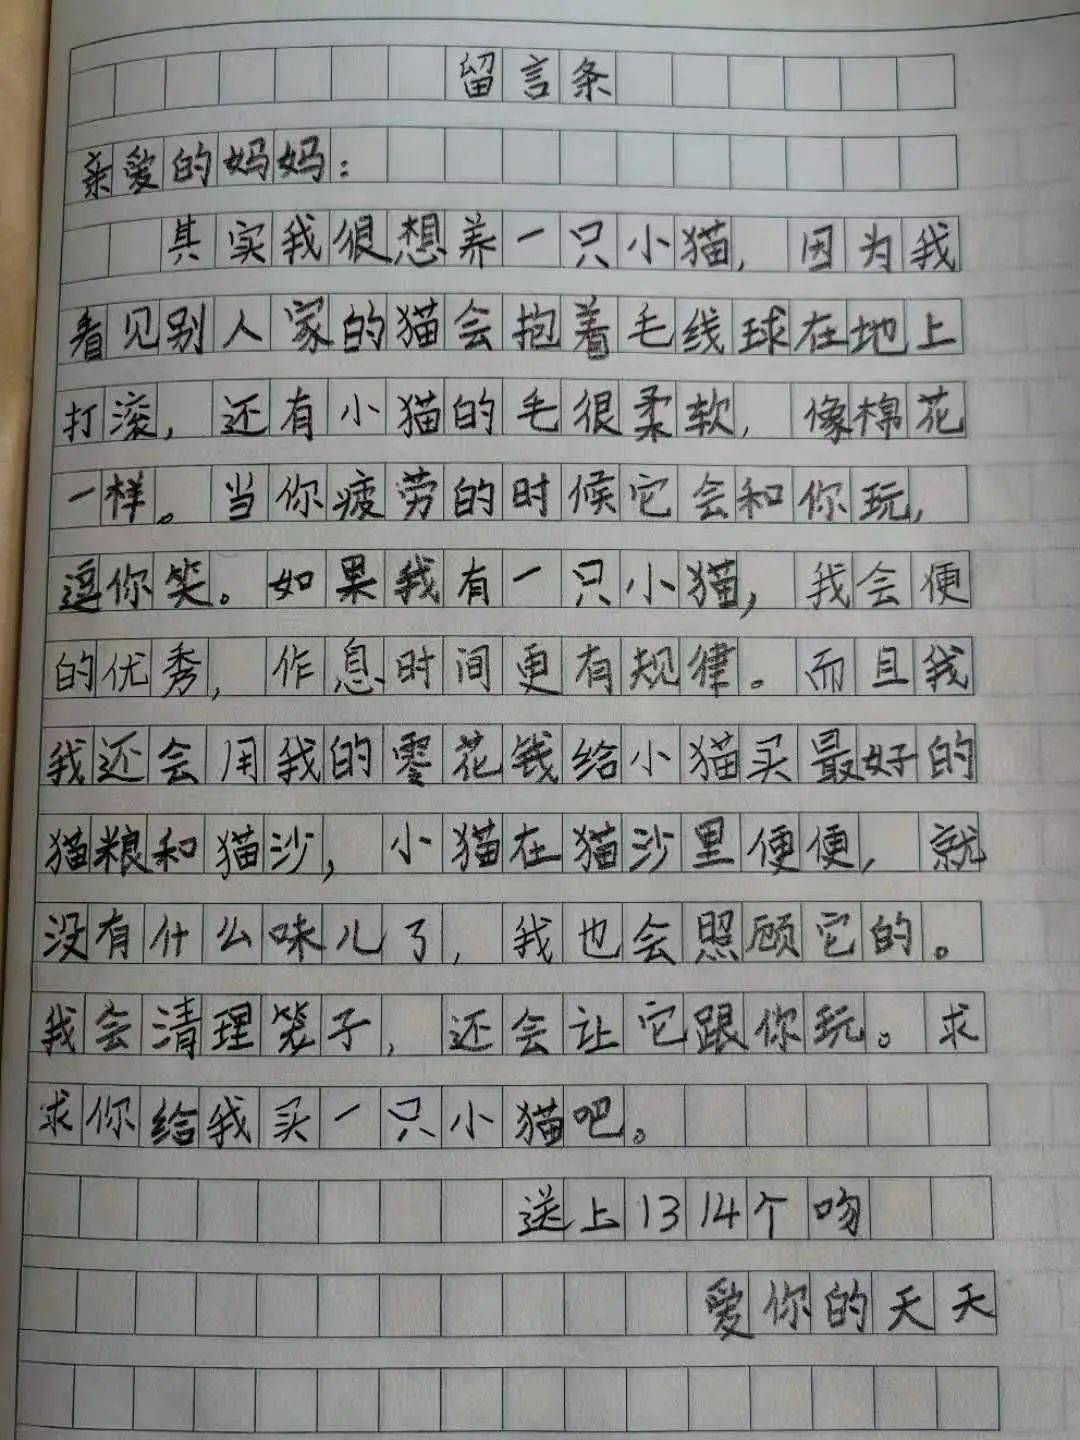 留言条
亲爱的妈妈：
其实我很想养一只小猫，因为我
看见别人家的猫会抱着毛线球在地上
打滚，还有小猫的毛很柔软，像棉花
一样。当你疲劳的时候它会和你玩，
逗你笑。如果我有一只小猫，我会便
的优秀，作息时间更有规律。而且我
我还会用我的零花钱给小猫买最好的
猫粮和猫沙，小猫在猫沙里便便，就
没有什么味儿了，我也会照顾它的。
我会清理笼子，还会让它跟你玩。求
求你给我买一只小猫吧。
送上1314个吻
爱你的天天